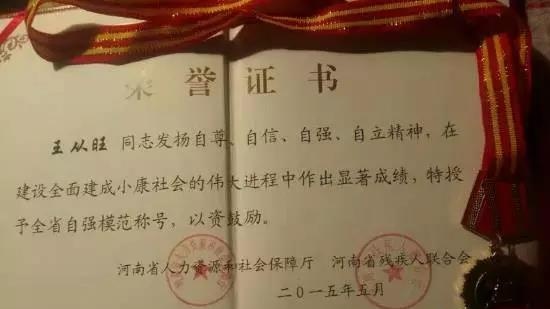 荣誉证书
王从旺 同志发扬自尊、自信、自强、自立精神，在
建设全面建成小康社会的伟大进程中作出显著成绩，特授
予全省自强模范称号，以资鼓励。
河南省人力资源和社会保障厅 河南省残疾人联合会
二〇一五年五月